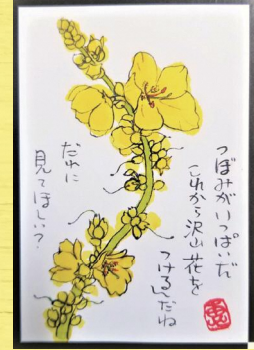 つぼみがいっぱいだ
これから沢山花を
つけるんだね
だれに
見てほしい？